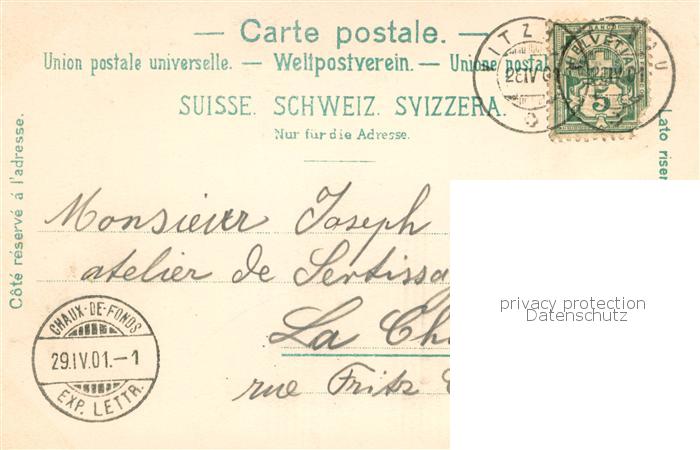 — Carte postale. —
Union postale universelle. — Weltpostverein. — Unione postal
SUISSE. SCHWEIZ. SVIZZERA.
Nur für die Adresse.
Côté réservé á l'adresse.
Lato riser
HELVETIA
5
Monsieur Joseph
atelier de Sertissa
La Ch
rue Fritz
CHAUX-DE-FONDS
29.IV.01.–1
EXP. LETTR.
privacy protection
Datenschutz